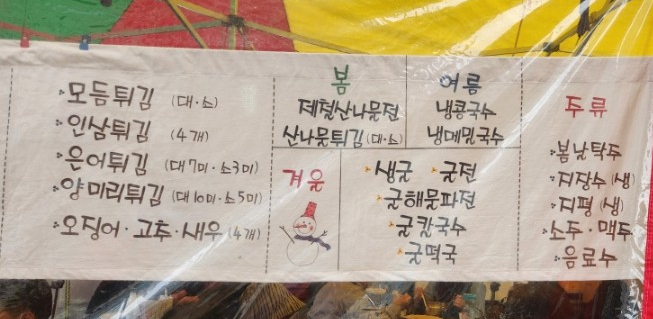 모듬튀김 (대·소)
인삼튀김 (4개)
은어튀김 (대7미·소3미)
양미리튀김 (대10미·소5미)
오징어·고추·새우 (4개)
봄
제철산나물전
산나물튀김 (대·소)
여름
냉콩국수
냉메밀국수
겨울
생굴 굴전
굴해물파전
굴칼국수
굴떡국
주류
봄날탁주
지장수 (생)
지평 (생)
소주·맥주
음료수